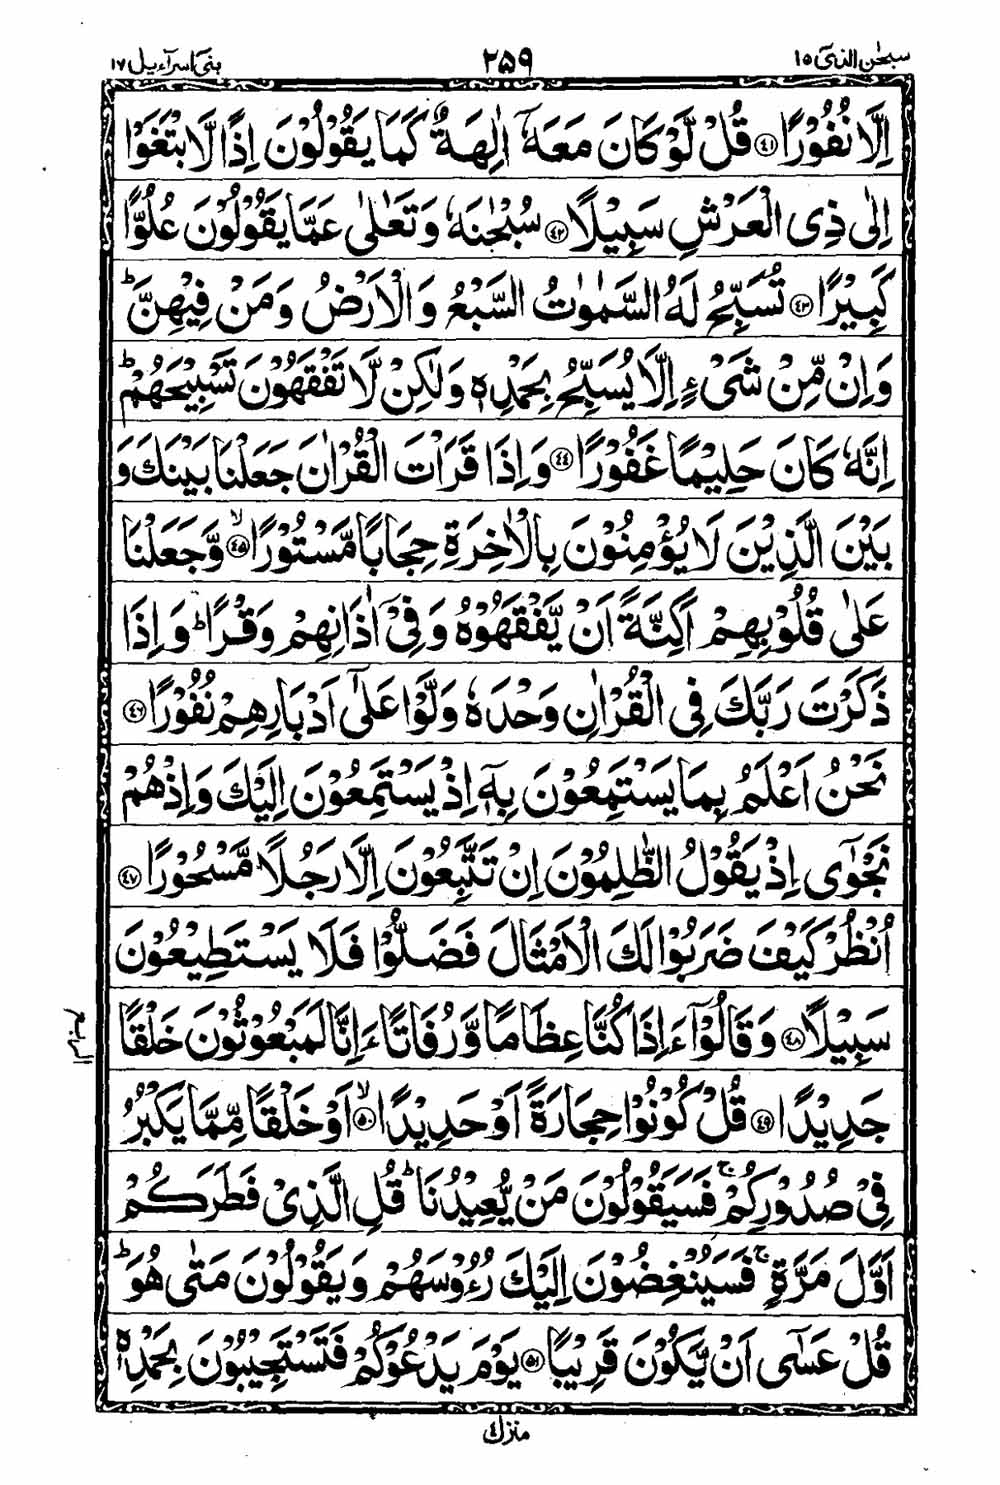 سبحٰن الذی ١٥ ٢٥٩ بنی اسرآءیل ١٧
اِلَّا نُفُوْرًا ﴿٤١﴾ قُلْ لَّوْ كَانَ مَعَهٗۤ اٰلِهَةٌ كَمَا يَقُوْلُوْنَ اِذًا لَّابْتَغَوْا
اِلٰى ذِى الْعَرْشِ سَبِيْلًا ﴿٤٢﴾ سُبْحٰنَهٗ وَتَعٰلٰى عَمَّا يَقُوْلُوْنَ عُلُوًّا
كَبِيْرًا ﴿٤٣﴾ تُسَبِّحُ لَهُ السَّمٰوٰتُ السَّبْعُ وَالْاَرْضُ وَمَنْ فِيْهِنَّ ؕ
وَاِنْ مِّنْ شَىْءٍ اِلَّا يُسَبِّحُ بِحَمْدِهٖ وَلٰكِنْ لَّا تَفْقَهُوْنَ تَسْبِيْحَهُمْ ؕ
اِنَّهٗ كَانَ حَلِيْمًا غَفُوْرًا ﴿٤٤﴾ وَاِذَا قَرَاْتَ الْقُرْاٰنَ جَعَلْنَا بَيْنَكَ وَ
بَيْنَ الَّذِيْنَ لَا يُؤْمِنُوْنَ بِالْاٰخِرَةِ حِجَابًا مَّسْتُوْرًا ۙ﴿٤٥﴾ وَّجَعَلْنَا
عَلٰى قُلُوْبِهِمْ اَكِنَّةً اَنْ يَّفْقَهُوْهُ وَفِىْۤ اٰذَانِهِمْ وَقْرًا ؕ وَاِذَا
ذَكَرْتَ رَبَّكَ فِى الْقُرْاٰنِ وَحْدَهٗ وَلَّوْا عَلٰۤى اَدْبَارِهِمْ نُفُوْرًا ﴿٤٦﴾
نَحْنُ اَعْلَمُ بِمَا يَسْتَمِعُوْنَ بِهٖۤ اِذْ يَسْتَمِعُوْنَ اِلَيْكَ وَاِذْ هُمْ
نَجْوٰۤى اِذْ يَقُوْلُ الظّٰلِمُوْنَ اِنْ تَتَّبِعُوْنَ اِلَّا رَجُلًا مَّسْحُوْرًا ﴿٤٧﴾
اُنْظُرْ كَيْفَ ضَرَبُوْا لَكَ الْاَمْثَالَ فَضَلُّوْا فَلَا يَسْتَطِيْعُوْنَ
سَبِيْلًا ﴿٤٨﴾ وَقَالُوْۤا ءَاِذَا كُنَّا عِظَامًا وَّرُفَاتًا ءَاِنَّا لَمَبْعُوْثُوْنَ خَلْقًا
الربع
جَدِيْدًا ﴿٤٩﴾ قُلْ كُوْنُوْا حِجَارَةً اَوْ حَدِيْدًا ۙ﴿٥٠﴾ اَوْ خَلْقًا مِّمَّا يَكْبُرُ
فِىْ صُدُوْرِكُمْ ۚ فَسَيَقُوْلُوْنَ مَنْ يُّعِيْدُنَا ؕ قُلِ الَّذِىْ فَطَرَكُمْ
اَوَّلَ مَرَّةٍ ۚ فَسَيُنْغِضُوْنَ اِلَيْكَ رُءُوْسَهُمْ وَيَقُوْلُوْنَ مَتٰى هُوَ ؕ
قُلْ عَسٰۤى اَنْ يَّكُوْنَ قَرِيْبًا ﴿٥١﴾ يَوْمَ يَدْعُوْكُمْ فَتَسْتَجِيْبُوْنَ بِحَمْدِهٖ
منزل ٤